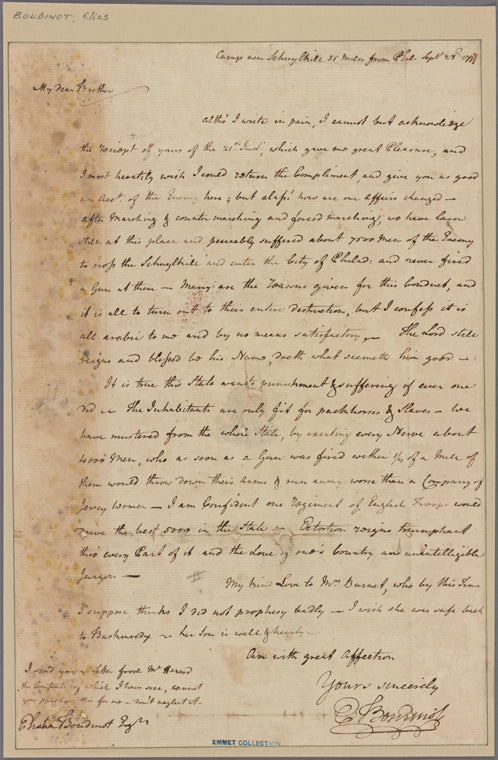 BOUDINOT, Elias
Camp near Schuylkill 35 Miles from Phil. Sept 23d
My dear Brother
altho' I write in pain, I cannot but acknowledge
the receipt of yours of the 21st Inst, which gave me great Pleasure, and
I most heartily wish I could return the Compliment and give you as good
an Acct. of the Enemy here; but alass! how are our affairs changed –
after Marching & counter marching and forced marching, we have layen
still at this place and peaceably suffered about 7500 Men of the Enemy
to cross the Schuylkill and enter the City of Philad: and never fired
a Gun at them – Many are the Reasons given for this Conduct, and
it is all to turn out to their entire destruction, but I confess it is
all arabic to me and by no means satisfactory – The Lord still
reigns and blessed be his Name, doth what seemeth him good –
It is true this State wants punishment & suffering if ever one
did – The Inhabitants are only fit for packhorses & Slaves – We
have mustered from the whole State, by exerting every Nerve about
Men, who as soon as a Gun was fired within 1/4 of a Mile of
them would throw down their arms & run away worse than a Company of
Jersey Women – I am Confident one Regiment of English Troops would
drive the best 5000 in the State – Extortion reigns triumphant
thro' every Part of it and the Love of one's Country an unintelligible
Jargon –
My kind Love to Mrs Burnet, who by this Time
I suppose, thinks I did not prophesy badly – I wish she was safe back
to Baskinridge – her Son is well & hearty –
Am with great Affection
Yours sincerely
E. Boudinot
I send you a letter from Mr
the Contents of which I have seen, cannot
you purchase this for me – don't neglect it.
Elisha Boudinot Esqr
EMMET COLLECTION